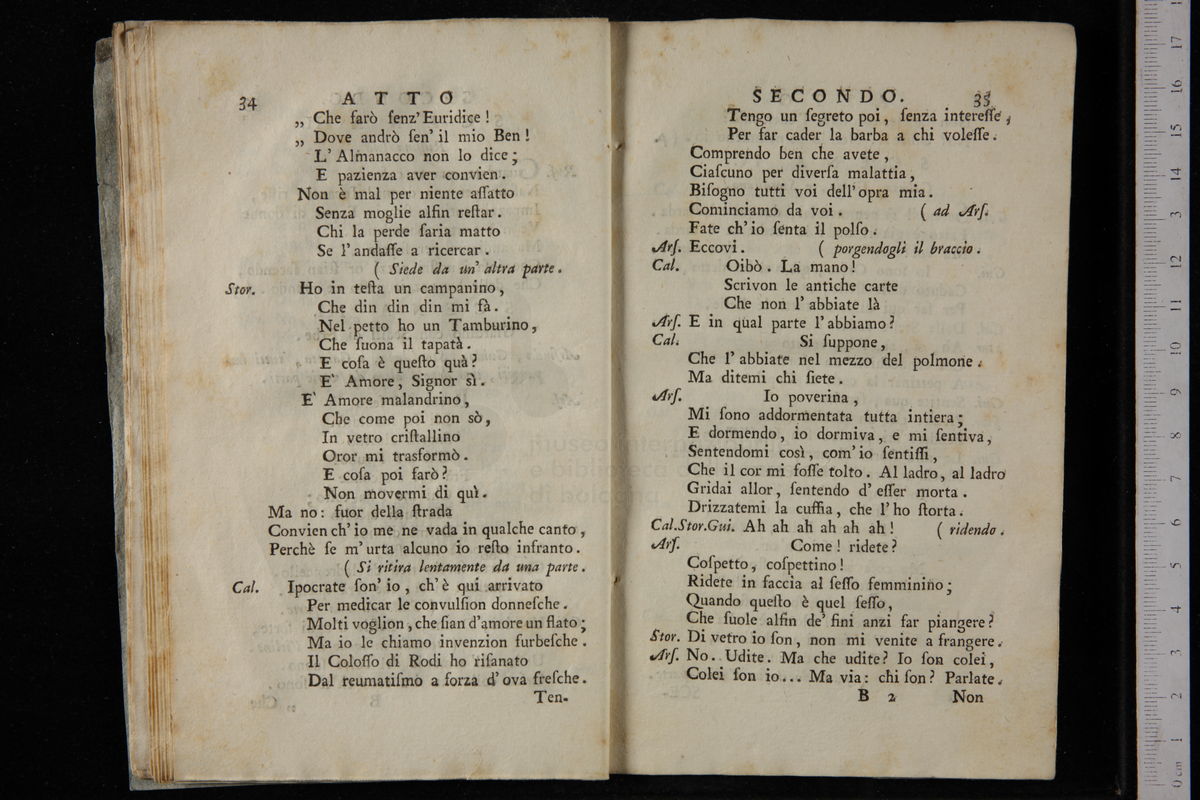 34 ATTO
„ Che farò ſenz' Euridice !
„ Dove andrò ſen' il mio Ben !
L' Almanacco non lo dice ;
E pazienza aver convien .
Non è mal per niente affatto
Senza moglie alfin reſtar .
Chi la perde ſaria matto
Se l' andaſſe a ricercar .
( Siede da un' altra parte .
Stor. Ho in teſta un campanino ,
Che din din din mi fà .
Nel petto ho un Tamburino ,
Che ſuona il tapatà .
E coſa è queſto quà ?
E' Amore , Signor sì .
E' Amore malandrino ,
Che come poi non sò ,
In vetro criſtallino
Oror mi trasformò .
E coſa poi farò ?
Non movermi di quì .
Ma no : fuor della ſtrada
Convien ch' io me ne vada in qualche canto ,
Perchè ſe m' urta alcuno io reſto infranto .
( Si ritira lentamente da una parte .
Cal. Ipocrate ſon' io , ch' è qui arrivato
Per medicar le convulſion donneſche .
Molti voglion , che ſian d'amore un flato ;
Ma io le chiamo invenzion furbeſche .
Il Coloſſo di Rodi ho riſanato
Dal reumatiſmo a forza d' ova freſche .
Ten-
SECONDO. 35
Tengo un ſegreto poi , ſenza intereſſe ,
Per far cader la barba a chi voleſſe .
Comprendo ben che avete ,
Ciaſcuno per diverſa malattia ,
Biſogno tutti voi dell' opra mia .
Cominciamo da voi . ( ad Arſ.
Fate ch' io ſenta il polſo .
Arſ. Eccovi . ( porgendogli il braccio .
Cal. Oibò . La mano !
Scrivon le antiche carte
Che non l' abbiate là
Arſ. E in qual parte l' abbiamo ?
Cal. Si ſuppone ,
Che l' abbiate nel mezzo del polmone .
Ma ditemi chi ſiete .
Arſ. Io poverina ,
Mi ſono addormentata tutta intiera ;
E dormendo , io dormiva , e mi ſentiva ,
Sentendomi così , com' io ſentiſſi ,
Che il cor mi foſſe tolto . Al ladro , al ladro
Gridai allor , ſentendo d' eſſer morta .
Drizzatemi la cuffia , che l' ho ſtorta .
Cal.Stor.Gui. Ah ah ah ah ah ah ! ( ridendo .
Arſ. Come ! ridete ?
Coſpetto , coſpettino !
Ridete in faccia al ſeſſo femminino ;
Quando queſto è quel ſeſſo ,
Che ſuole alfin de' fini anzi far piangere ?
Stor. Di vetro io ſon , non mi venite a frangere .
Arſ. No . Udite . Ma che udite ? Io ſon colei ,
Colei ſon io... Ma via : chi ſon ? Parlate .
B 2 Non
museo
e biblioteca
di bologna
0 cm 1 2 3 4 5 6 7 8 9 10 11 12 13 14 15 16 17